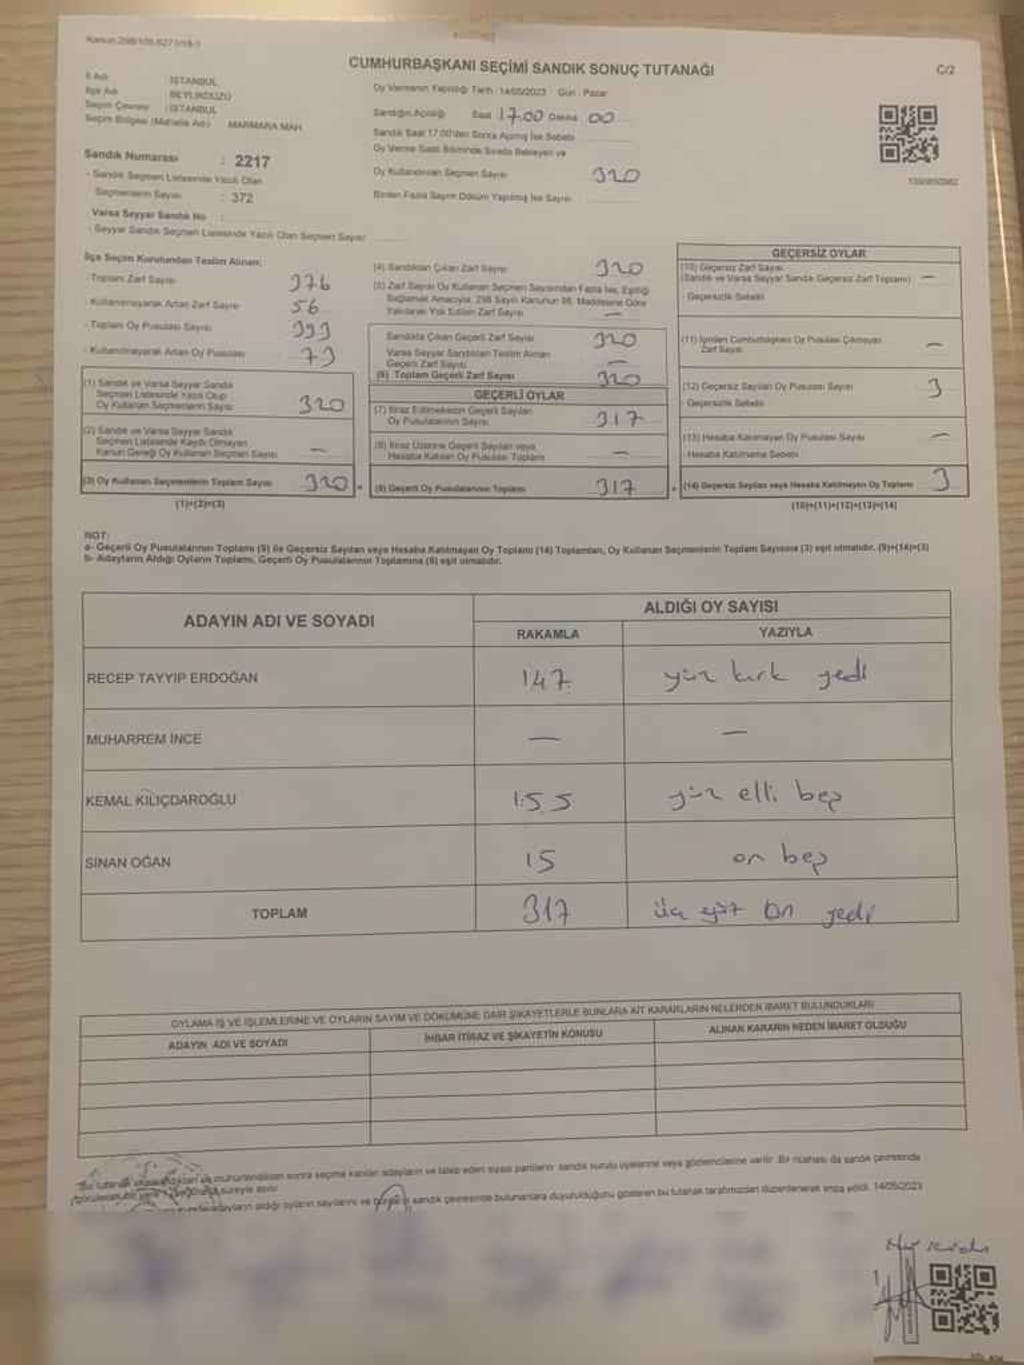 CUMHURBAŞKANI SEÇİMİ SANDIK SONUÇ TUTANAĞI
C/2
İli Adı İSTANBUL
İlçe Adı BEYLİKDÜZÜ
Seçim Çevresi : İSTANBUL
Seçim Bölgesi (Mahalle Adı) MARMARA MAH.
Sandık Numarası : 2217
- Sandık Seçmen Listesinde Yazılı Olan
Seçmenlerin Sayısı : 372
- Varsa Seyyar Sandık No :
- Seyyar Sandık Seçmen Listesinde Yazılı Olan Seçmen Sayısı
Oy Vermenin Yapıldığı Tarih : 14/05/2023 Gün : Pazar
Sandığın Açıldığı Saat 17.00 Dakika 00
Sandık Saat 17.00'den Sonra Açılmış İse Sebebi
Oy Verme Saati Bitiminde Sırada Bekleyen ve
Oy Kullandırılan Seçmen Sayısı 320
Birden Fazla Sayım Döküm Yapılmış İse Sayısı
İlçe Seçim Kurulundan Teslim Alınan;
- Toplam Zarf Sayısı 376
- Kullanılmayarak Artan Zarf Sayısı 56
- Toplam Oy Pusulası Sayısı 393
- Kullanılmayarak Artan Oy Pusulası 73
(1) Sandık ve Varsa Seyyar Sandık
Seçmen Listesinde Yazılı Olup
Oy Kullanan Seçmenlerin Sayısı 320
(2) Sandık ve Varsa Seyyar Sandık
Seçmen Listesinde Kayıtlı Olmayan
Kanun Gereği Oy Kullanan Seçmen Sayısı —
(3) Oy Kullanan Seçmenlerin Toplam Sayısı 320
(1)+(2)=(3)
(4) Sandıktan Çıkan Zarf Sayısı 320
(5) Zarf Sayısı Oy Kullanan Seçmen Sayısından Fazla İse, Eşitliği
Sağlamak Amacıyla; 298 Sayılı Kanunun 98. Maddesine Göre
Yakılarak Yok Edilen Zarf Sayısı —
Sandıkta Çıkan Geçerli Zarf Sayısı 320
Varsa Seyyar Sandıktan Teslim Alınan
Geçerli Zarf Sayısı —
(6) Toplam Geçerli Zarf Sayısı 320
GEÇERLİ OYLAR
(7) İtiraz Edilmeksizin Geçerli Sayılan
Oy Pusulalarının Sayısı 317
(8) İtiraz Üzerine Geçerli Sayılan veya
Hesaba Katılan Oy Pusulası Toplamı —
(9) Geçerli Oy Pusulalarının Toplamı 317
GEÇERSİZ OYLAR
(10) Geçersiz Zarf Sayısı
(Sandık ve Varsa Seyyar Sandık Geçersiz Zarf Toplamı) —
- Geçersizlik Sebebi
(11) İçinden Cumhurbaşkanı Oy Pusulası Çıkmayan
Zarf Sayısı —
(12) Geçersiz Sayılan Oy Pusulası Sayısı 3
- Geçersizlik Sebebi
(13) Hesaba Katılmayan Oy Pusulası Sayısı —
- Hesaba Katılmama Sebebi
(14) Geçersiz Sayılan veya Hesaba Katılmayan Oy Toplamı 3
(10)+(11)+(12)+(13)=(14)
NOT:
a- Geçerli Oy Pusulalarının Toplamı (9) ile Geçersiz Sayılan veya Hesaba Katılmayan Oy Toplamı (14) Toplamları, Oy Kullanan Seçmenlerin Toplam Sayısına (3) eşit olmalıdır. (9)+(14)=(3)
b- Adayların Aldığı Oyların Toplamı, Geçerli Oy Pusulalarının Toplamına (9) eşit olmalıdır.
ADAYIN ADI VE SOYADI
ALDIĞI OY SAYISI
RAKAMLA YAZIYLA
RECEP TAYYİP ERDOĞAN 147 yüz kırk yedi
MUHARREM İNCE — —
KEMAL KILIÇDAROĞLU 155 yüz elli beş
SİNAN OĞAN 15 on beş
TOPLAM 317 üç yüz on yedi
OYLAMA İŞ VE İŞLEMLERİNE VE OYLARIN SAYIM VE DÖKÜMÜNE DAİR ŞİKAYETLERLE BUNLARA AİT KARARLARIN NELERDEN İBARET BULUNDUKLARI
ADAYIN ADI VE SOYADI
İHBAR İTİRAZ VE ŞİKAYETİN KONUSU
ALINAN KARARIN NEDEN İBARET OLDUĞU
mühürlendikten sonra seçime katılan adayların ve talep eden siyasi partilerin sandık kurulu üyelerine veya gözlemcilerine verilir. Bir nüshası da sandık çevresinde
adayların aldığı oyların sayılarını ve sandık çevresinde bulunanlara duyurulduğunu gösteren bu tutanak tarafımızdan düzenlenerek imza edildi. 14/05/2023